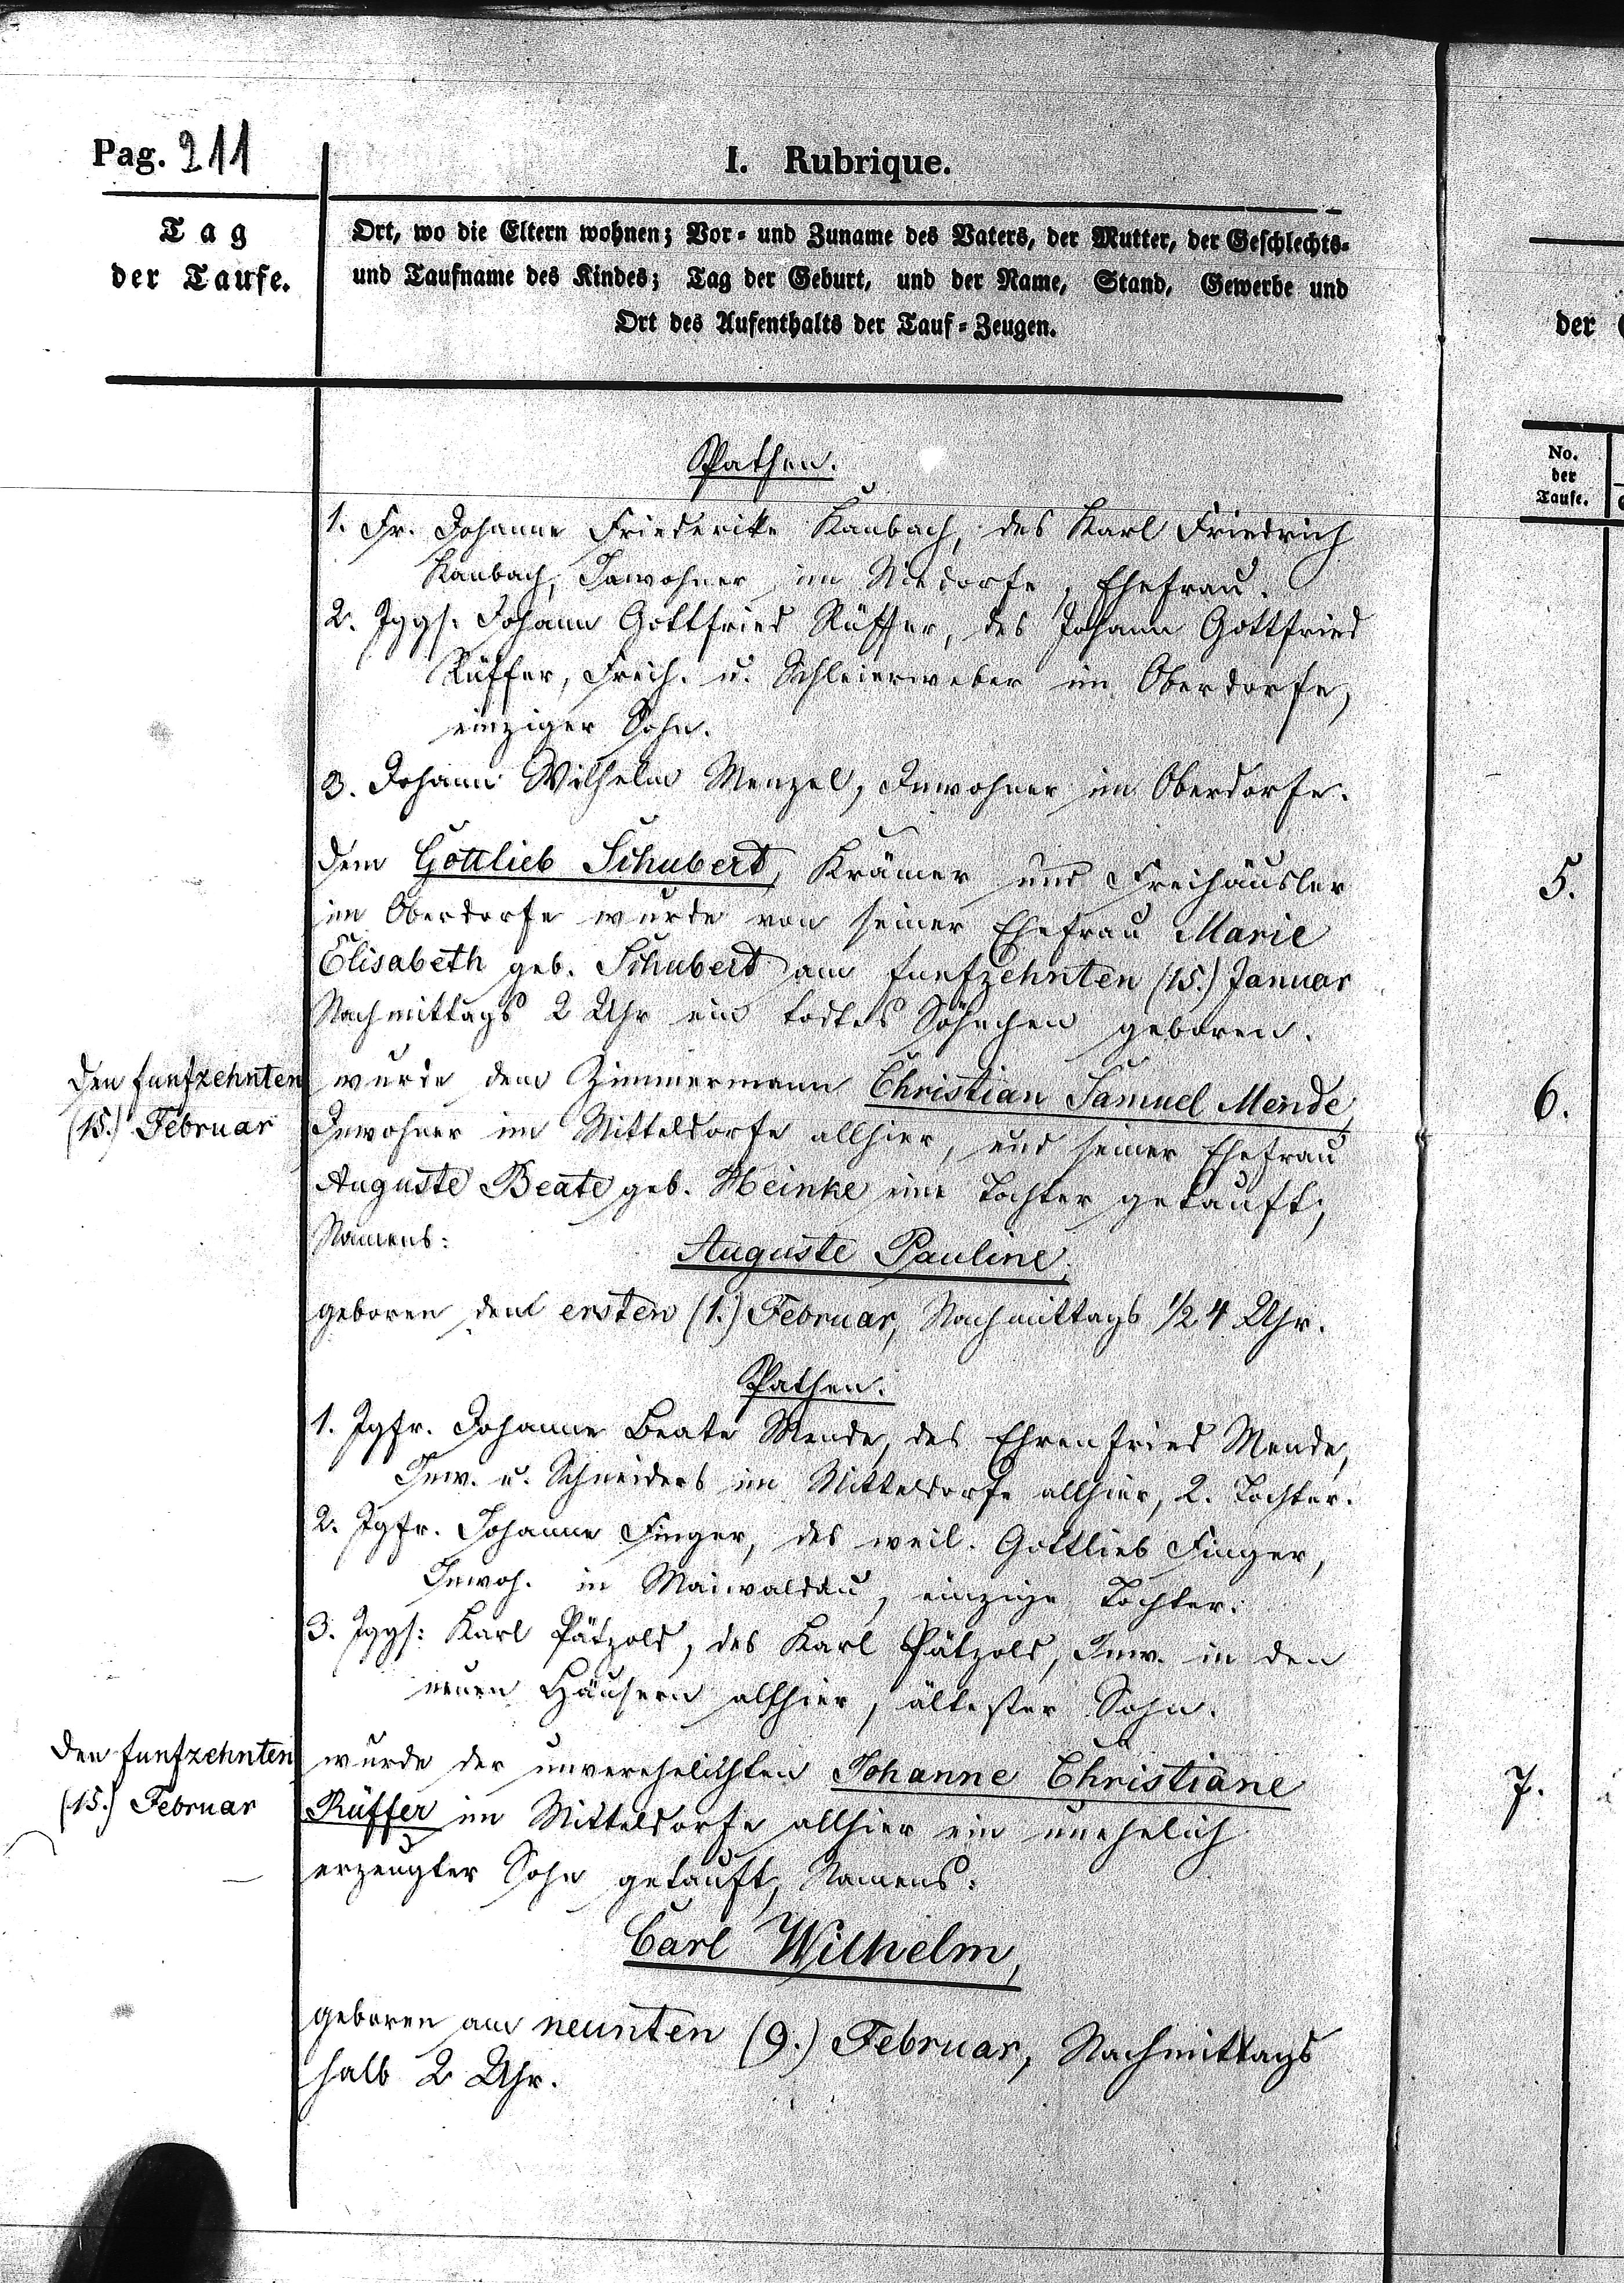 Pag. 211
I. Rubrique.
Tag
der Taufe.
Ort, wo die Eltern wohnen; Vor- und Zuname des Vaters, der Mutter, der Geschlechts-
und Taufname des Kindes; Tag der Geburt, und der Name, Stand, Gewerbe und
Ort des Aufenthalts der Tauf-Zeugen.
der
No.
der
Taufe.
Pathen.
1. Fr. Johanne Friederike Kaubach, des Karl Friedrich
Kaubach, Inwohner im Niedorfe, Ehefrau.
2. Jggs. Johann Gottfried Rüffer, des Johann Gottfried
Rüffer, Freih. u. Schleierweber im Oberdorfe,
einziger Sohn.
3. Johann Wilhelm Menzel, Inwohner im Oberdorfe.
Dem Gottlieb Schubert, Krämer und Freihäusler
5.
im Oberdorfe wurde von seiner Ehefrau Marie
Elisabeth geb. Schubert am funfzehnten (15.) Januar
Nachmittags 2 Uhr ein todtes Söhnchen geboren.
Den funfzehnten
(15.) Februar
wurde dem Zimmermann Christian Samuel Mende,
6.
Inwohner im Mitteldorfe allhier, und seiner Ehefrau
Auguste Beate geb. Heinke eine Tochter getauft,
Namens:
Auguste Pauline,
geboren den ersten (1.) Februar, Nachmittags 1/2 4 Uhr.
Pathen.
1. Jgfr. Johanne Beate Mende, des Ehrenfried Mende,
Inw. u. Schneiders im Mitteldorfe allhier, 2. Tochter.
2. Jgfr. Johanne Finger, des weil. Gottlieb Finger,
Inwoh. in Maiwaldau, einzige Tochter.
3. Jggs: Karl Pätzold, des Karl Pätzold, Inw. in den
neuen Häusern allhier, ältester Sohn.
Den funfzehnten
(15.) Februar
wurde der unverehelichten Johanne Christiane
7.
Rüffer im Mitteldorfe allhier ein unehelich
erzeugter Sohn getauft, Namens:
Carl Wilhelm,
geboren am neunten (9.) Februar, Nachmittags
halb 2 Uhr.